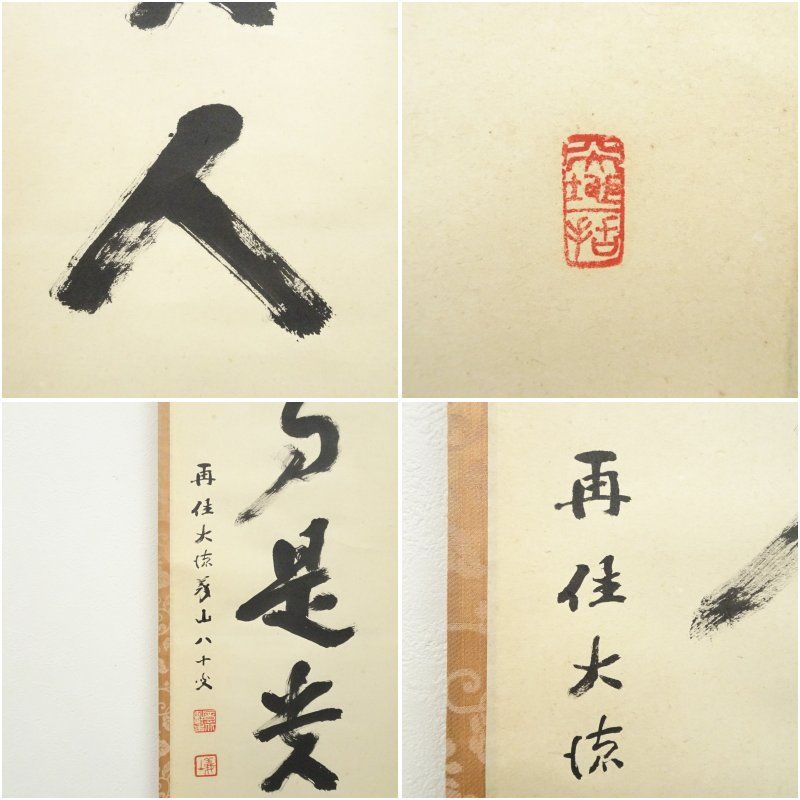 人
事是貴
再住大徳義山八十叟
再住大徳